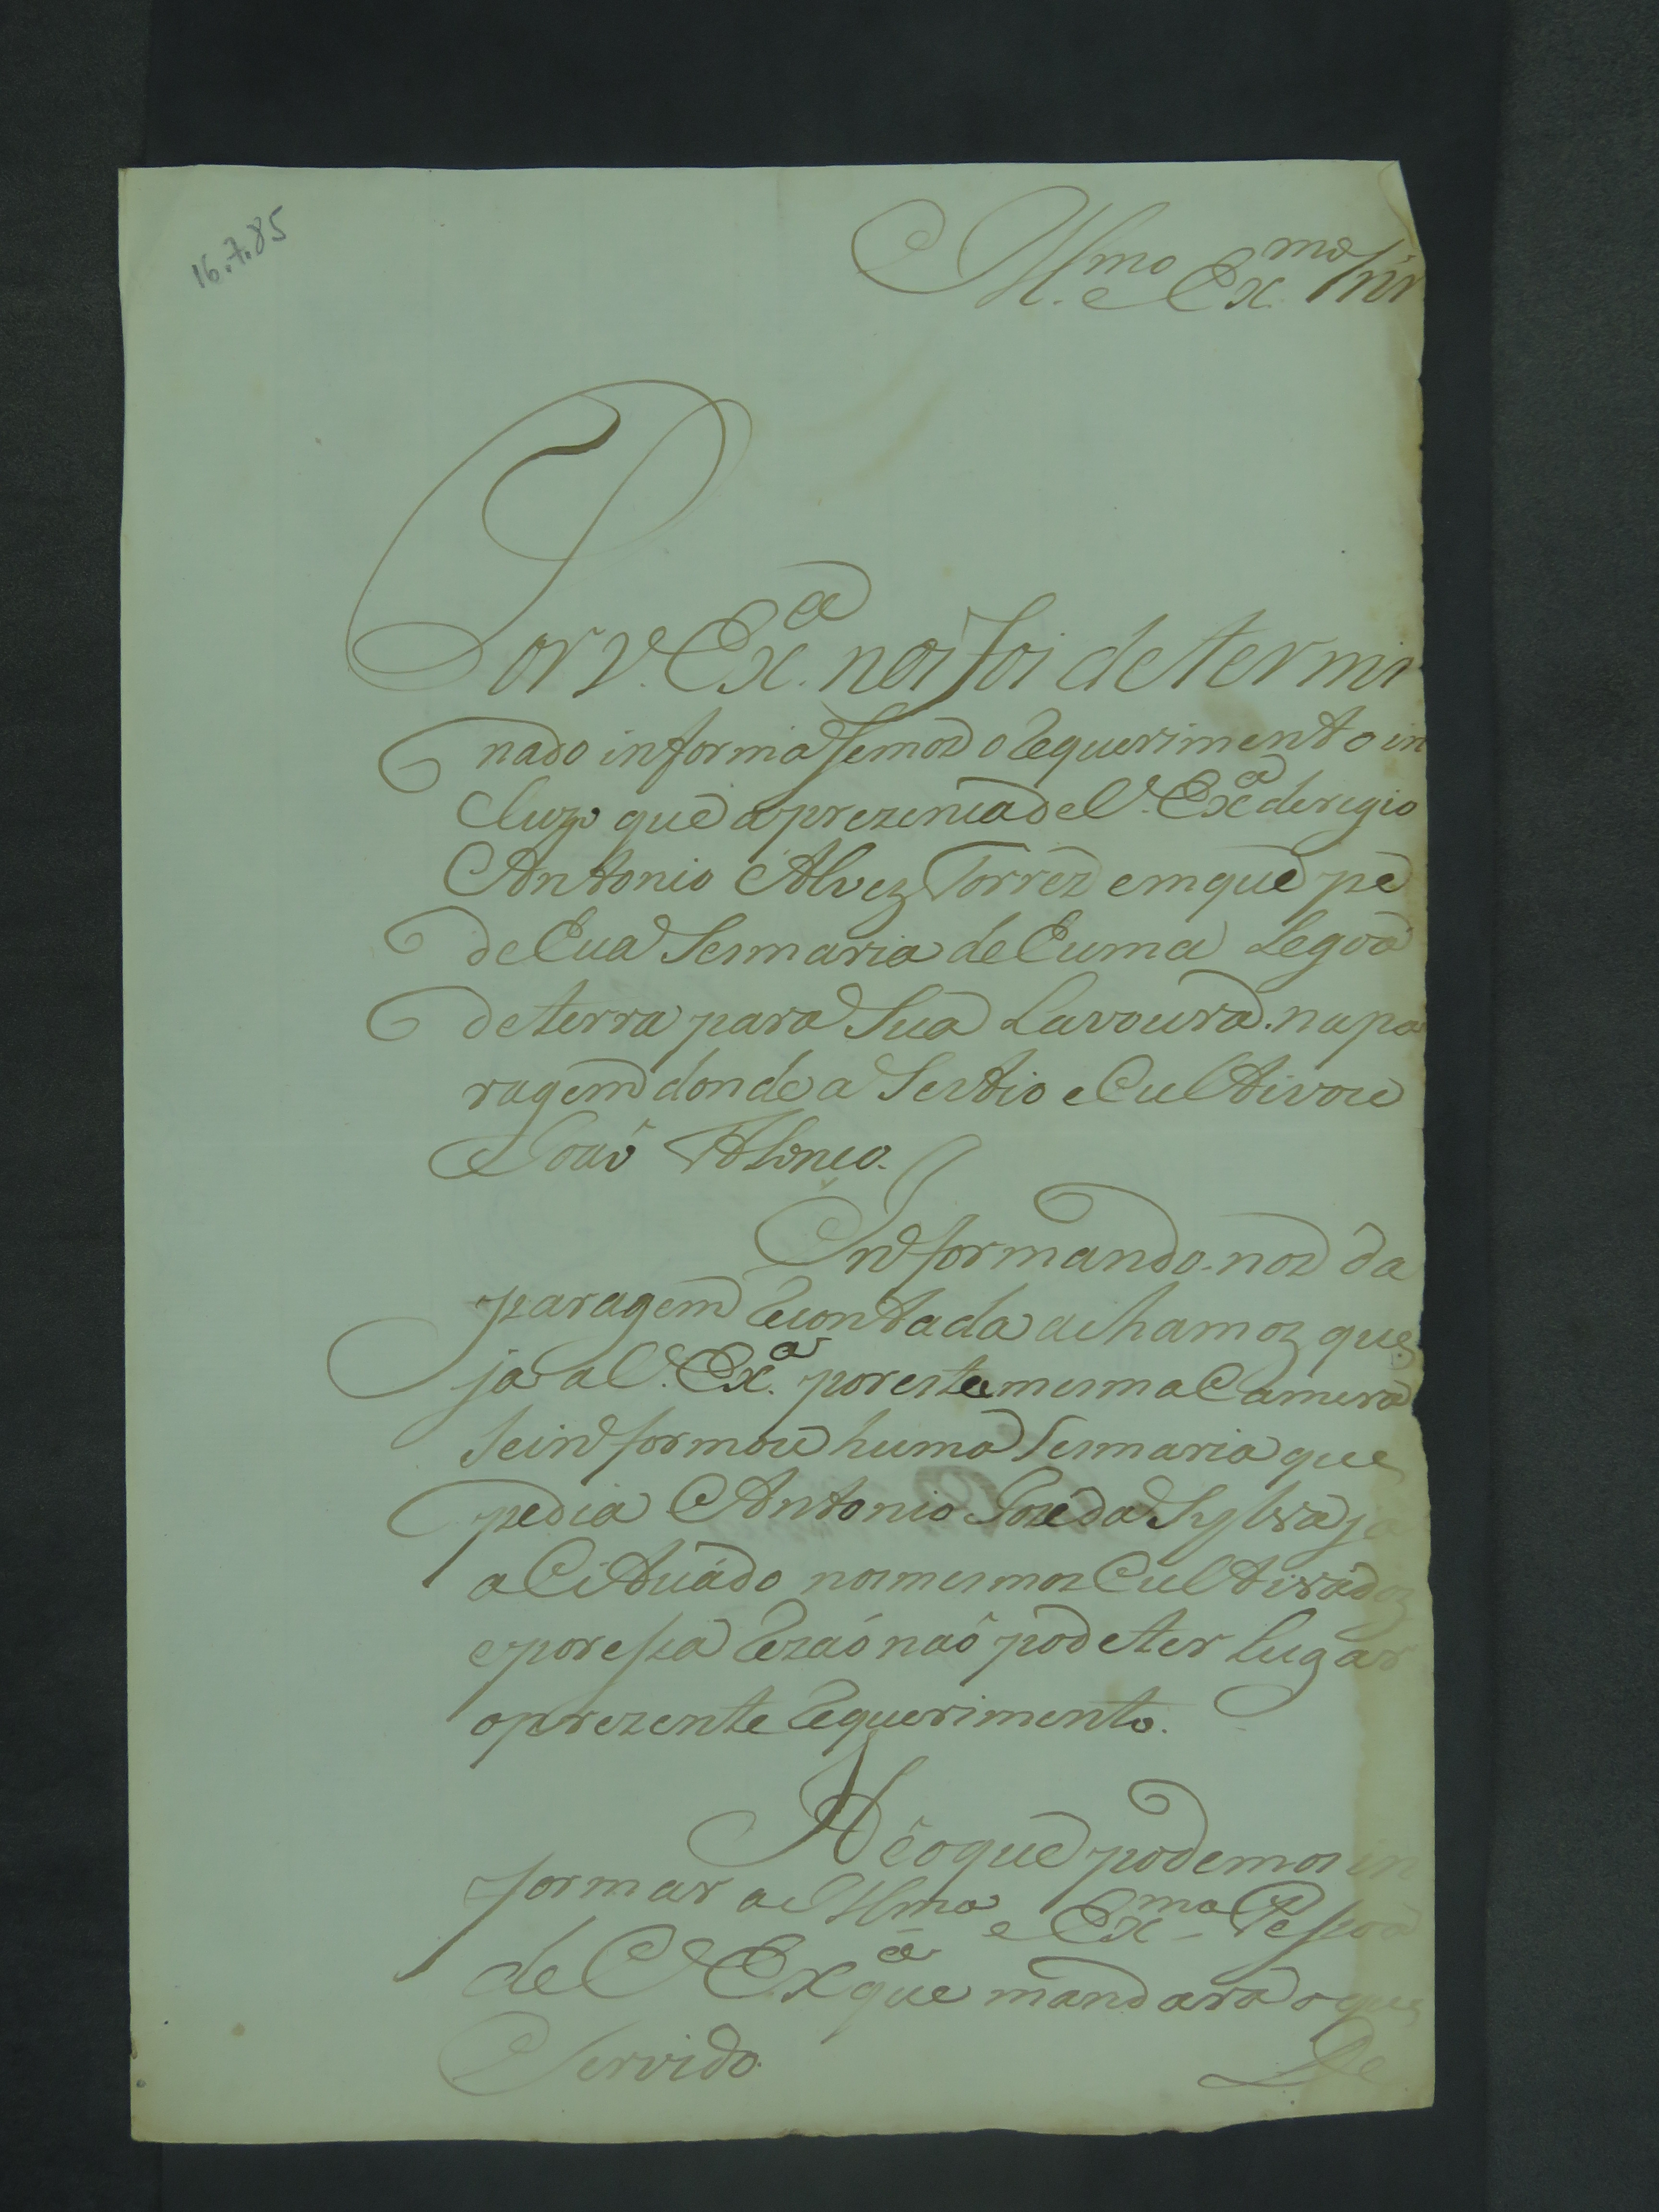 16.7.85
Ill.mo e Ex.mo Snr
Por V. Ex.a nos foi determi
nado informasemos o Requerimento in
cluzo que aprezenta de V. Ex.a
Antonio Alvez Torres em que pe
de hua Sesmaria de huma Legoa
de terra para Sua Lavoura. na pa
ragem donde a Sestio e Cultivou
Joaõ
Informando-nos da
paragem Recontada achamos que
ja a V. Ex.a por esta mesma Camera
Se informou huma Sesmaria que
pedia Antonio Jozé da Sylva ja
a Cituádo nos mesmos Cultivádoz
e por esta Rezaõ naõ pode ter lugar
o prezente Requerimento.
He o que podemos in
formar a Illma e Ex.ma Pessoa
de V. Ex.a que mandara o que
Servido.
De